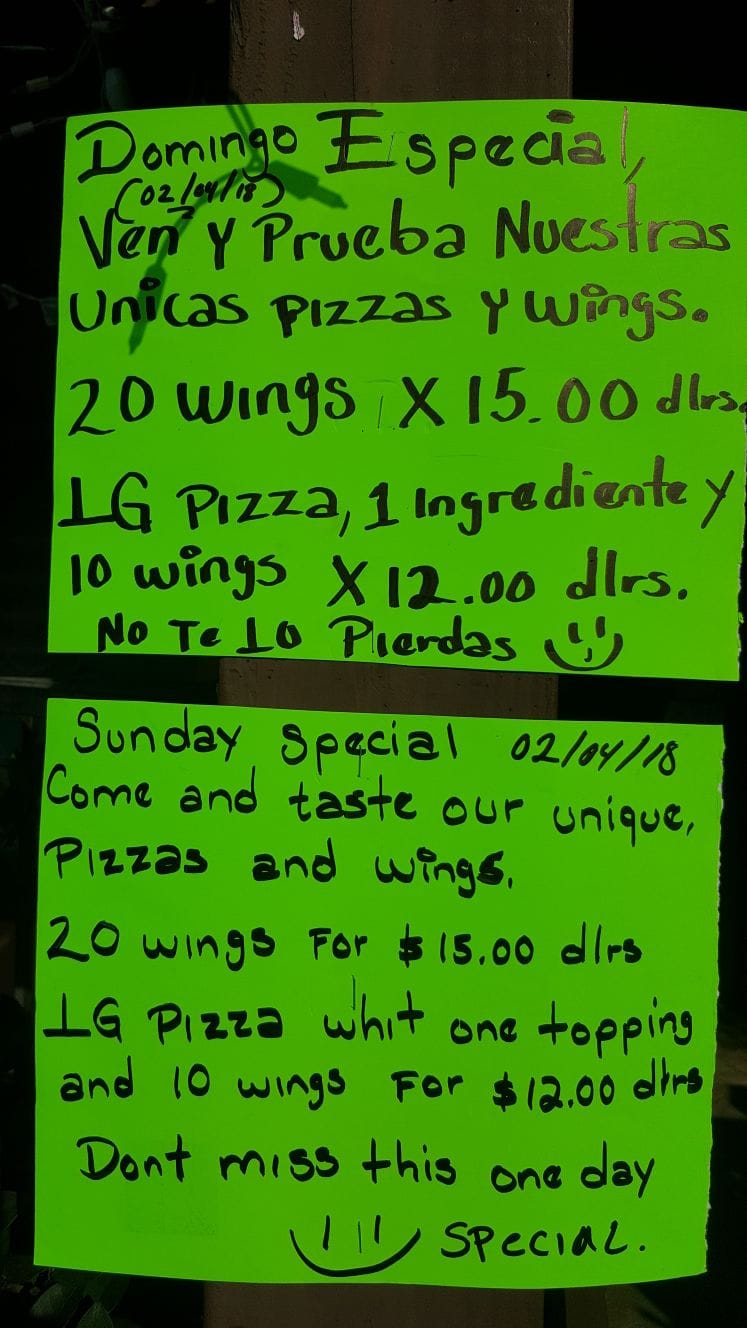 Domingo Especial,
(02/04/18)
Ven Y Prueba Nuestras
Unicas Pizzas Y Wings.
20 Wings X 15.00 dlrs.
LG Pizza, 1 Ingrediente Y
10 wings X 12.00 dlrs.
No Te Lo Pierdas
Sunday Special 02/04/18
Come and taste our unique,
Pizzas and wings.
20 wings For $15.00 dlrs
LG Pizza whit one topping
and 10 wings For $12.00 dlrs
Dont miss this one day
Special.